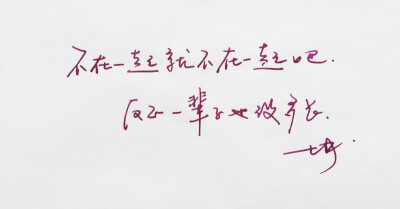 不在一起就不在一起吧.
反正一辈子也没多长.